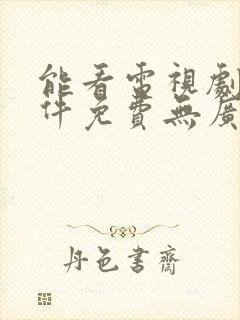 能看電視劇
件免費無廣
丹色書齋